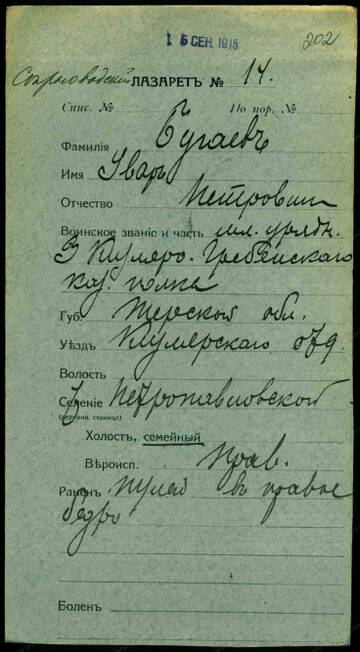 15 СЕН. 1915
202
ЛАЗАРЕТЪ № 14.
Спис. № По пор. №
Фамилія Бугаевъ
Имя Уваръ
Отчество Петровичъ
Воинское званіе и часть мл. урядн.
3 Кизляро-Гребенскаго
каз. полка
Губ. Терской обл.
Уѣздъ Кизлярскаго отд.
Волость
Селеніе Петропавловской
(деревня, станица)
Холостъ, семейный
Вѣроисп. Прав.
Раненъ пулей въ правое
бедро
Боленъ